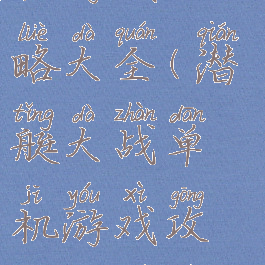 lüè dà quán qián
略大全(潜
tǐng dà zhàn dān
艇大战单
jī yóu xì gōng
机游戏攻